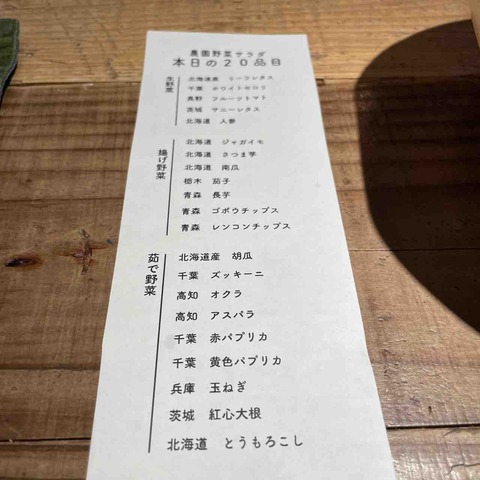 農園野菜サラダ
本日の20品目
生野菜
北海道産 リーフレタス
千葉 ホワイトセロリ
長野 フルーツトマト
茨城 サニーレタス
北海道 人参
揚げ野菜
北海道 ジャガイモ
北海道 さつま芋
北海道 南瓜
栃木 茄子
青森 長芋
青森 ゴボウチップス
青森 レンコンチップス
茹で野菜
北海道産 胡瓜
千葉 ズッキーニ
高知 オクラ
高知 アスパラ
千葉 赤パプリカ
千葉 黄色パプリカ
兵庫 玉ねぎ
茨城 紅心大根
北海道 とうもろこし